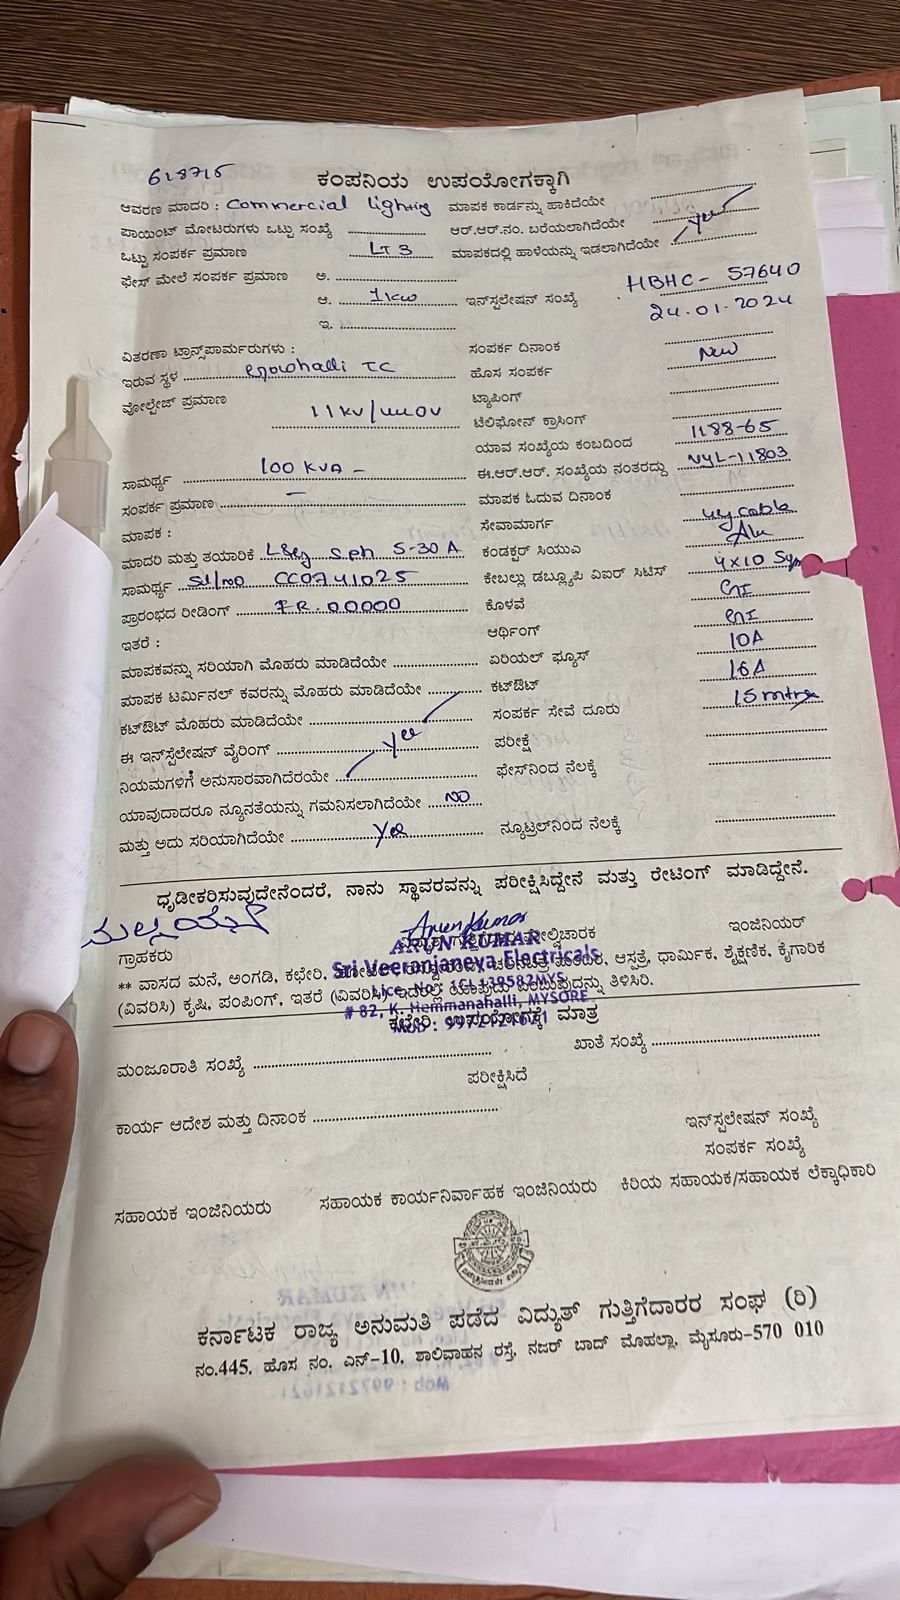 618715
ಕಂಪನಿಯ ಉಪಯೋಗಕ್ಕಾಗಿ
ಆವರಣ ಮಾದರಿ : Commercial lighting ಮಾಪಕ ಕಾರ್ಡನ್ನು ಹಾಕಿದೆಯೇ
ಪಾಯಿಂಟ್ ಮೋಟರುಗಳು ಒಟ್ಟು ಸಂಖ್ಯೆ ಆರ್.ಆರ್.ನಂ. ಬರೆಯಲಾಗಿದೆಯೇ yes
ಒಟ್ಟು ಸಂಪರ್ಕ ಪ್ರಮಾಣ LT 3 ಮಾಪಕದಲ್ಲಿ ಹಾಳೆಯನ್ನು ಇಡಲಾಗಿದೆಯೇ
ಫೇಸ್ ಮೇಲೆ ಸಂಪರ್ಕ ಪ್ರಮಾಣ ಅ.
ಆ. 1kw ಇನ್‌ಸ್ಟಲೇಷನ್ ಸಂಖ್ಯೆ HBHC- 57640
24.01.2024
ಇ.
ವಿತರಣಾ ಟ್ರಾನ್ಸ್‌ಪಾರ್ಮರುಗಳು : ಸಂಪರ್ಕ ದಿನಾಂಕ
ಇರುವ ಸ್ಥಳ TC ಹೊಸ ಸಂಪರ್ಕ New
ವೋಲ್ಟೇಜ್ ಪ್ರಮಾಣ 11kv/440v ಟ್ಯಾಪಿಂಗ್
ಟೆಲಿಫೋನ್ ಕ್ರಾಸಿಂಗ್
ಯಾವ ಸಂಖ್ಯೆಯ ಕಂಬದಿಂದ 1188-65
ಸಾಮರ್ಥ್ಯ 100 KVA - ಈ.ಆರ್.ಆರ್. ಸಂಖ್ಯೆಯ ನಂತರದ್ದು NYL-11803
ಸಂಪರ್ಕ ಪ್ರಮಾಣ - ಮಾಪಕ ಓದುವ ದಿನಾಂಕ
ಮಾಪಕ : ಸೇವಾಮಾರ್ಗ ug cable
ಮಾದರಿ ಮತ್ತು ತಯಾರಿಕೆ L&g sph 5-30 A ಕಂಡಕ್ಟರ್ ಸಿಯುವಿ Alu
ಸಾಮರ್ಥ್ಯ Sl/no CC0741025 ಕೇಬಲ್ಲು ಡಬ್ಲ್ಯೂಪಿ ವಿಐರ್ ಸಿಟಿಸ್ 4x10 Sqm
ಪ್ರಾರಂಭದ ರೀಡಿಂಗ್ FR. 00000 ಕೊಳವೆ GI
ಇತರೆ : ಆರ್ಥಿಂಗ್ GI
ಮಾಪಕವನ್ನು ಸರಿಯಾಗಿ ಮೊಹರು ಮಾಡಿದೆಯೇ ಏರಿಯಲ್ ಫ್ಯೂಸ್ 10A
ಮಾಪಕ ಟರ್ಮಿನಲ್ ಕವರನ್ನು ಮೊಹರು ಮಾಡಿದೆಯೇ ಕಟ್‌ಔಟ್ 16A
ಕಟ್‌ಔಟ್ ಮೊಹರು ಮಾಡಿದೆಯೇ ಸಂಪರ್ಕ ಸೇವೆ ದೂರು 15 mtrs
ಈ ಇನ್‌ಸ್ಟಲೇಷನ್ ವೈರಿಂಗ್ yes ಪರೀಕ್ಷೆ
ನಿಯಮಗಳಿಗೆ ಅನುಸಾರವಾಗಿದೆರಯೇ ಫೇಸ್‌ನಿಂದ ನೆಲಕ್ಕೆ
ಯಾವುದಾದರೂ ನ್ಯೂನತೆಯನ್ನು ಗಮನಿಸಲಾಗಿದೆಯೇ NO
ಮತ್ತು ಅದು ಸರಿಯಾಗಿದೆಯೇ yes ನ್ಯೂಟ್ರಲ್‌ನಿಂದ ನೆಲಕ್ಕೆ
ಧೃಡೀಕರಿಸುವುದೇನೆಂದರೆ, ನಾನು ಸ್ಥಾವರವನ್ನು ಪರೀಕ್ಷಿಸಿದ್ದೇನೆ ಮತ್ತು ರೇಟಿಂಗ್ ಮಾಡಿದ್ದೇನೆ.
Arun Kumar
ಗ್ರಾಹಕರು ಮೇಲ್ವಿಚಾರಕ ಇಂಜಿನಿಯರ್
ARUN KUMAR
Sri Veeranjaneya Electricals
** ವಾಸದ ಮನೆ, ಅಂಗಡಿ, ಕಛೇರಿ, ಆಸ್ಪತ್ರೆ, ಧಾರ್ಮಿಕ, ಶೈಕ್ಷಣಿಕ, ಕೈಗಾರಿಕ
(ವಿವರಿಸಿ) ಕೃಷಿ, ಪಂಪಿಂಗ್, ಇತರೆ (ವಿವರಿಸಿ) ಇದರಲ್ಲಿ ಯಾವುದು ಎಂಬುವುದನ್ನು ತಿಳಿಸಿರಿ.
# 82, K. Hemmanahalli, MYSORE
ಕಛೇರಿ ಉಪಯೋಗಕ್ಕೆ ಮಾತ್ರ
ಮಂಜೂರಾತಿ ಸಂಖ್ಯೆ ಖಾತೆ ಸಂಖ್ಯೆ
ಪರೀಕ್ಷಿಸಿದೆ
ಕಾರ್ಯ ಆದೇಶ ಮತ್ತು ದಿನಾಂಕ
ಇನ್‌ಸ್ಪಲೇಷನ್ ಸಂಖ್ಯೆ
ಸಂಪರ್ಕ ಸಂಖ್ಯೆ
ಸಹಾಯಕ ಇಂಜಿನಿಯರು ಸಹಾಯಕ ಕಾರ್ಯನಿರ್ವಾಹಕ ಇಂಜಿನಿಯರು ಕಿರಿಯ ಸಹಾಯಕ/ಸಹಾಯಕ ಲೆಕ್ಕಾಧಿಕಾರಿ
ಕರ್ನಾಟಕ ರಾಜ್ಯ ಅನುಮತಿ ಪಡೆದ ವಿದ್ಯುತ್ ಗುತ್ತಿಗೆದಾರರ ಸಂಘ (ರಿ)
ನಂ.445, ಹೊಸ ನಂ. ಎನ್-10, ಶಾಲಿವಾಹನ ರಸ್ತೆ, ನಜರ್ ಬಾದ್ ಮೊಹಲ್ಲಾ, ಮೈಸೂರು-570 010